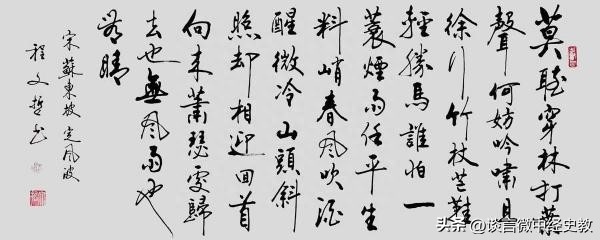 莫聽穿林打葉
聲何妨吟嘯且
徐行竹杖芒鞋
輕勝馬誰怕一
蓑煙雨任平生
料峭春風吹酒
醒微冷山頭斜
照却相迎回首
向來蕭瑟處歸
去也無風雨也
無晴
宋蘇東坡定風波
程文哲书
头条 @谈言微中经史教